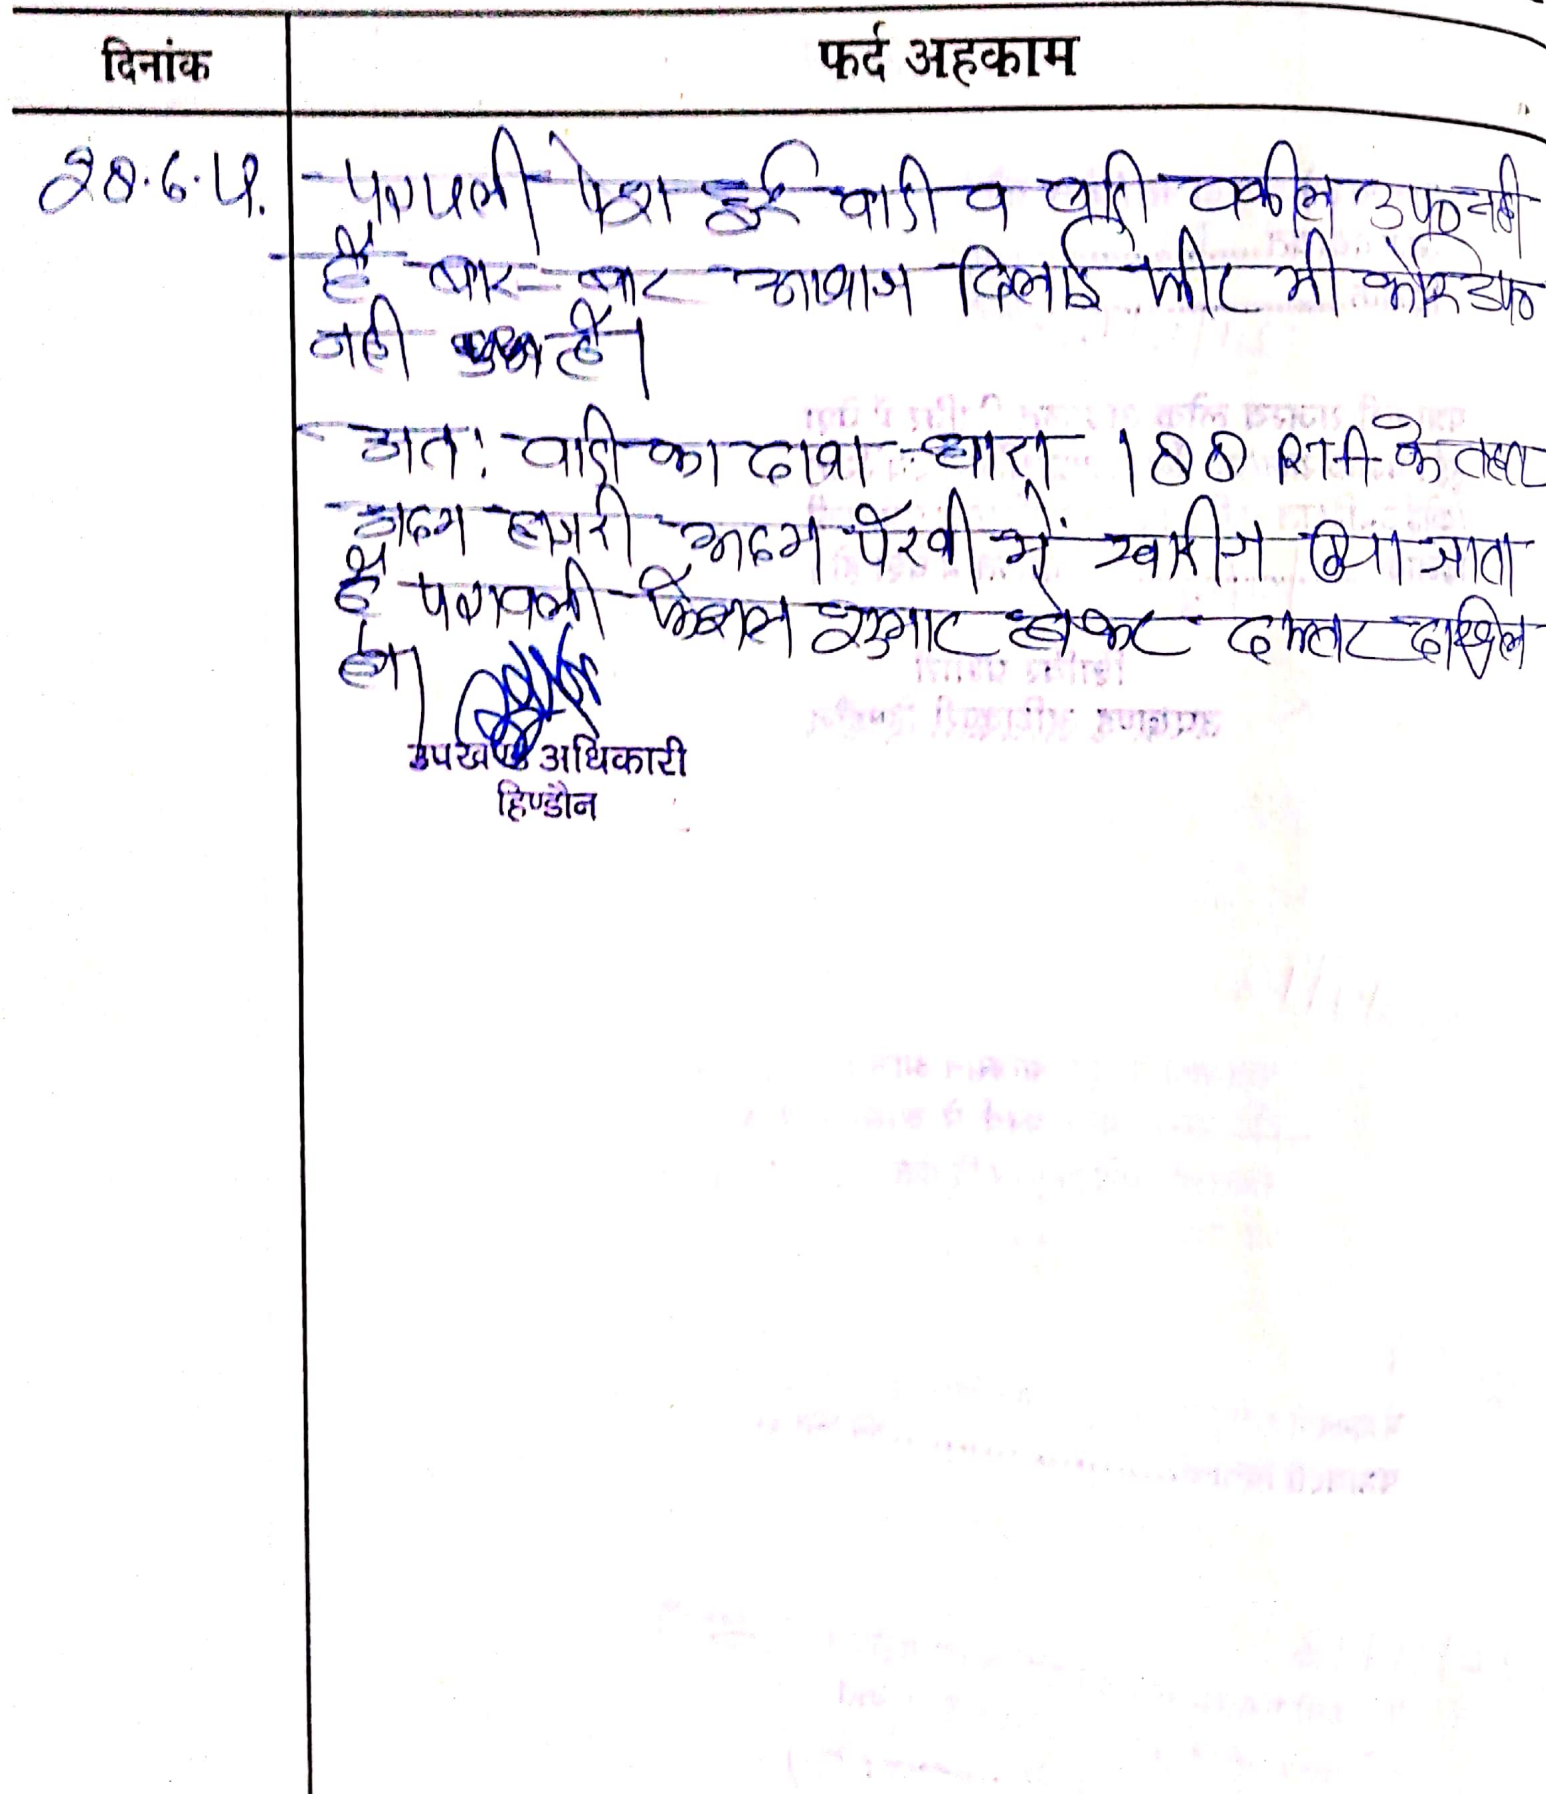 दिनांक
फर्द अहकाम
28.6.
पत्रावली पेश हुई वादी व वादी वकील उप० नही
है बार-बार आवाज दिलाई फीर भी कोई उप०
नही है।
अतः वादी का दावा धारा 188 RTA के तहत
अदम हाजरी अदम पैरवी में खारीज किया जाता
है पत्रावली फैसल शुमार होकर दफ्तर दाखिल
हो।
उपखण्ड अधिकारी
हिण्डौन